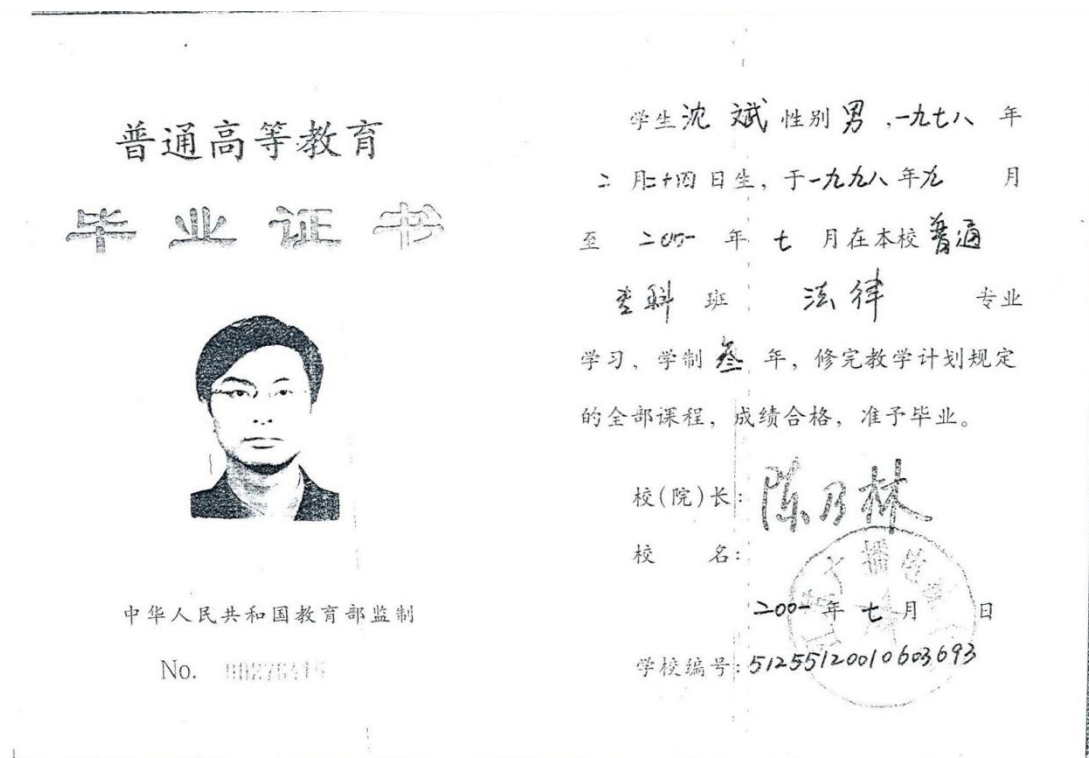 普通高等教育
毕业证书
中华人民共和国教育部监制
No.
学生 沈斌 性别 男 ,一九七八 年
二 月二十四日生，于一九九八年九 月
至 二〇〇一 年 七 月在本校 普通
专科 班 法律 专业
学习、学制 叁 年，修完教学计划规定
的全部课程，成绩合格，准予毕业。
校(院)长: 陈乃林
校 名:
二〇〇一年 七 月 日
学校编号: 51255120010603693